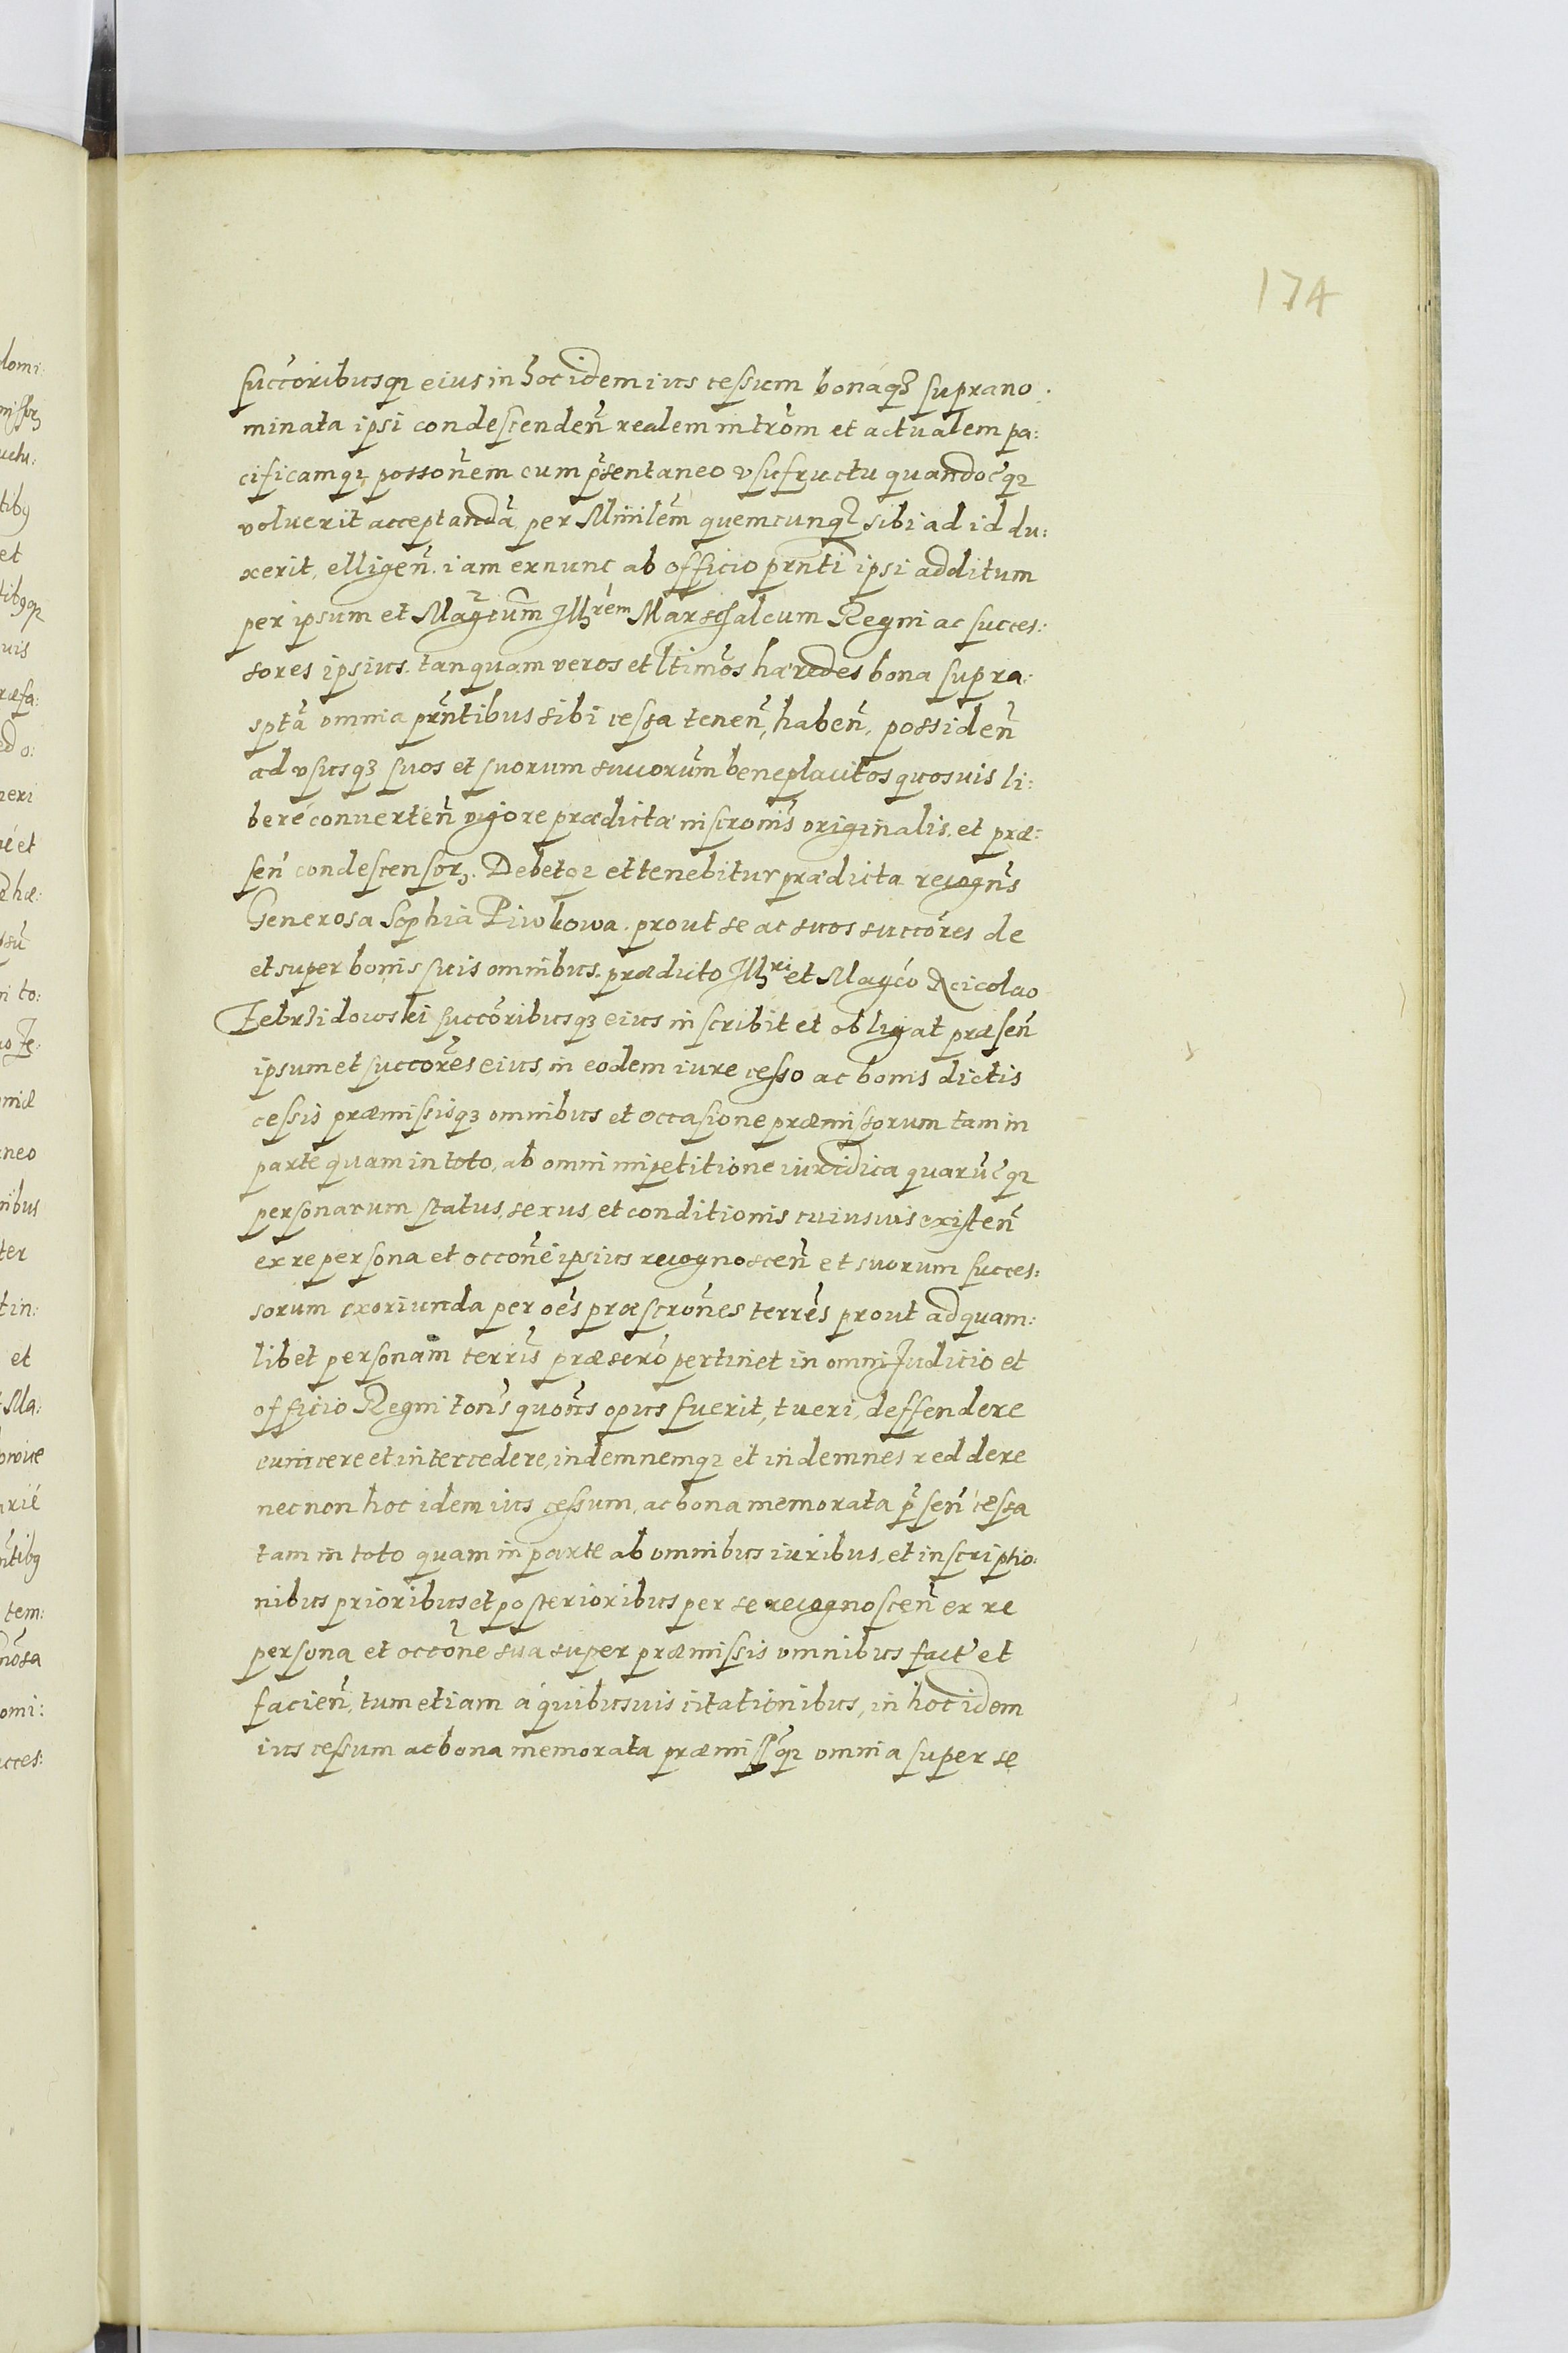 174
succoribusq3 eius in hoc idem ius cessum bonaq3 suprano:
minata ipsi condescenden̄ realem intrōm et actualem pa:
cificamq3 possōnem cum p̄sentaneo vsufructu quandoc̄q3
voluerit acceptandā per Mīnlēm quemcunq3 sibi ad id du:
xerit, elligen̄. iam exnunc ab officio prn̄ti ipsi additum
per ipsum et Magcūm Illrem Marschalcum Regni ac succes:
sores ipsius. tanquam veros et ltimōs hæredes bona supra:
sptā omnia prn̄tibus sibi cessa tenen̄, haben̄, possiden̄
ad vsusq3 suos et suorum suuorūm beneplacitos quosuis li:
beré conuerten̄ vigore prædictæ inscronīs originalis. et præ:
sen̄ condescensor3. Debetq3 et tenebitur prædicta recogn̄s
Generosa Sophia Piwkowa. prout se ac suos succōres de
et super bonis suis omnibus. prædicto Illri et Magcó Nicolao
Zebrzidowski succōribusq3 eius inscribit et obligat præsen̄
ipsum et succōres eius, in eodem iure cesso ac bonis dictis
cessis præmissisq3 omnibus et occasione præmissorum tam in
parte quam in toto, ab omni impetitione iuridica quarūc̄q3
personarum status, sexus, et conditionis cuiusuis existen̄
ex re persona et occōne ipsius recognoscen̄ et suorum succes:
sorum exoriunda per oēs præscrōnes terrēs prout ad quam:
libet personam terrīs præserō pertinet in omni Judicio et
officio Regni tonīs quōtīs opus fuerit, tueri, deffendere
euincere et intercedere, indemnemq3 et indemnes reddere
necnon hoc idem ius cessum, ac bona memorata p̄sen̄ cessa
tam in toto quam in parte ab omnibus iuribus, et inscriptio:
nibus prioribus et posterioribus per se recognoscen̄ ex re
persona et occōne sua super præmissis omnibus fact̄ et
facien̄, tum etiam á quibusuis citationibus, in hoc idem
ius cessum ac bona memorata præmiss̄q3 omnia super se